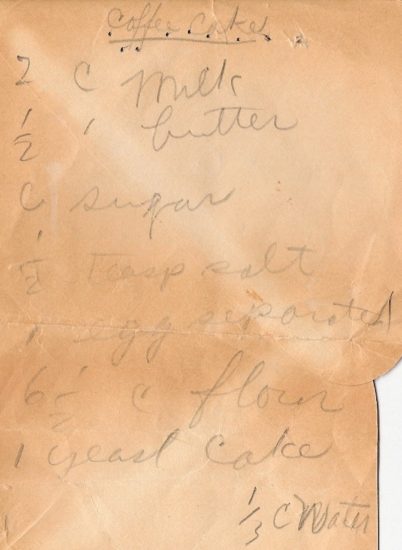 Coffee Cakes
2 C Milk
1/2 " butter
C sugar
1/2 teasp salt
1 egg separated
6 1/2 c flour
1 yeast Cake
1/3 C Water